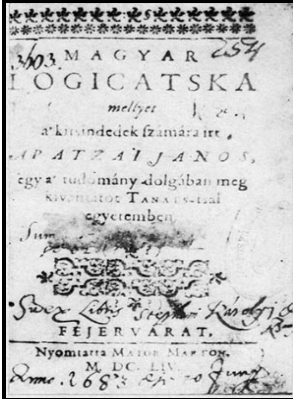 3603
254
MAGYAR
LOGICATSKA
mellyet
a' kitsindedek számára irt
APATZAI JANOS,
egy a' tudomány dolgában meg
kivántatot TANATS-tsal
egyetemben
Sum
ex Libris Stephani Károlyi
FEJERVÁRAT,
Nyomtatta MAJOR MARTON.
M DC. LIV.
Anno. 168